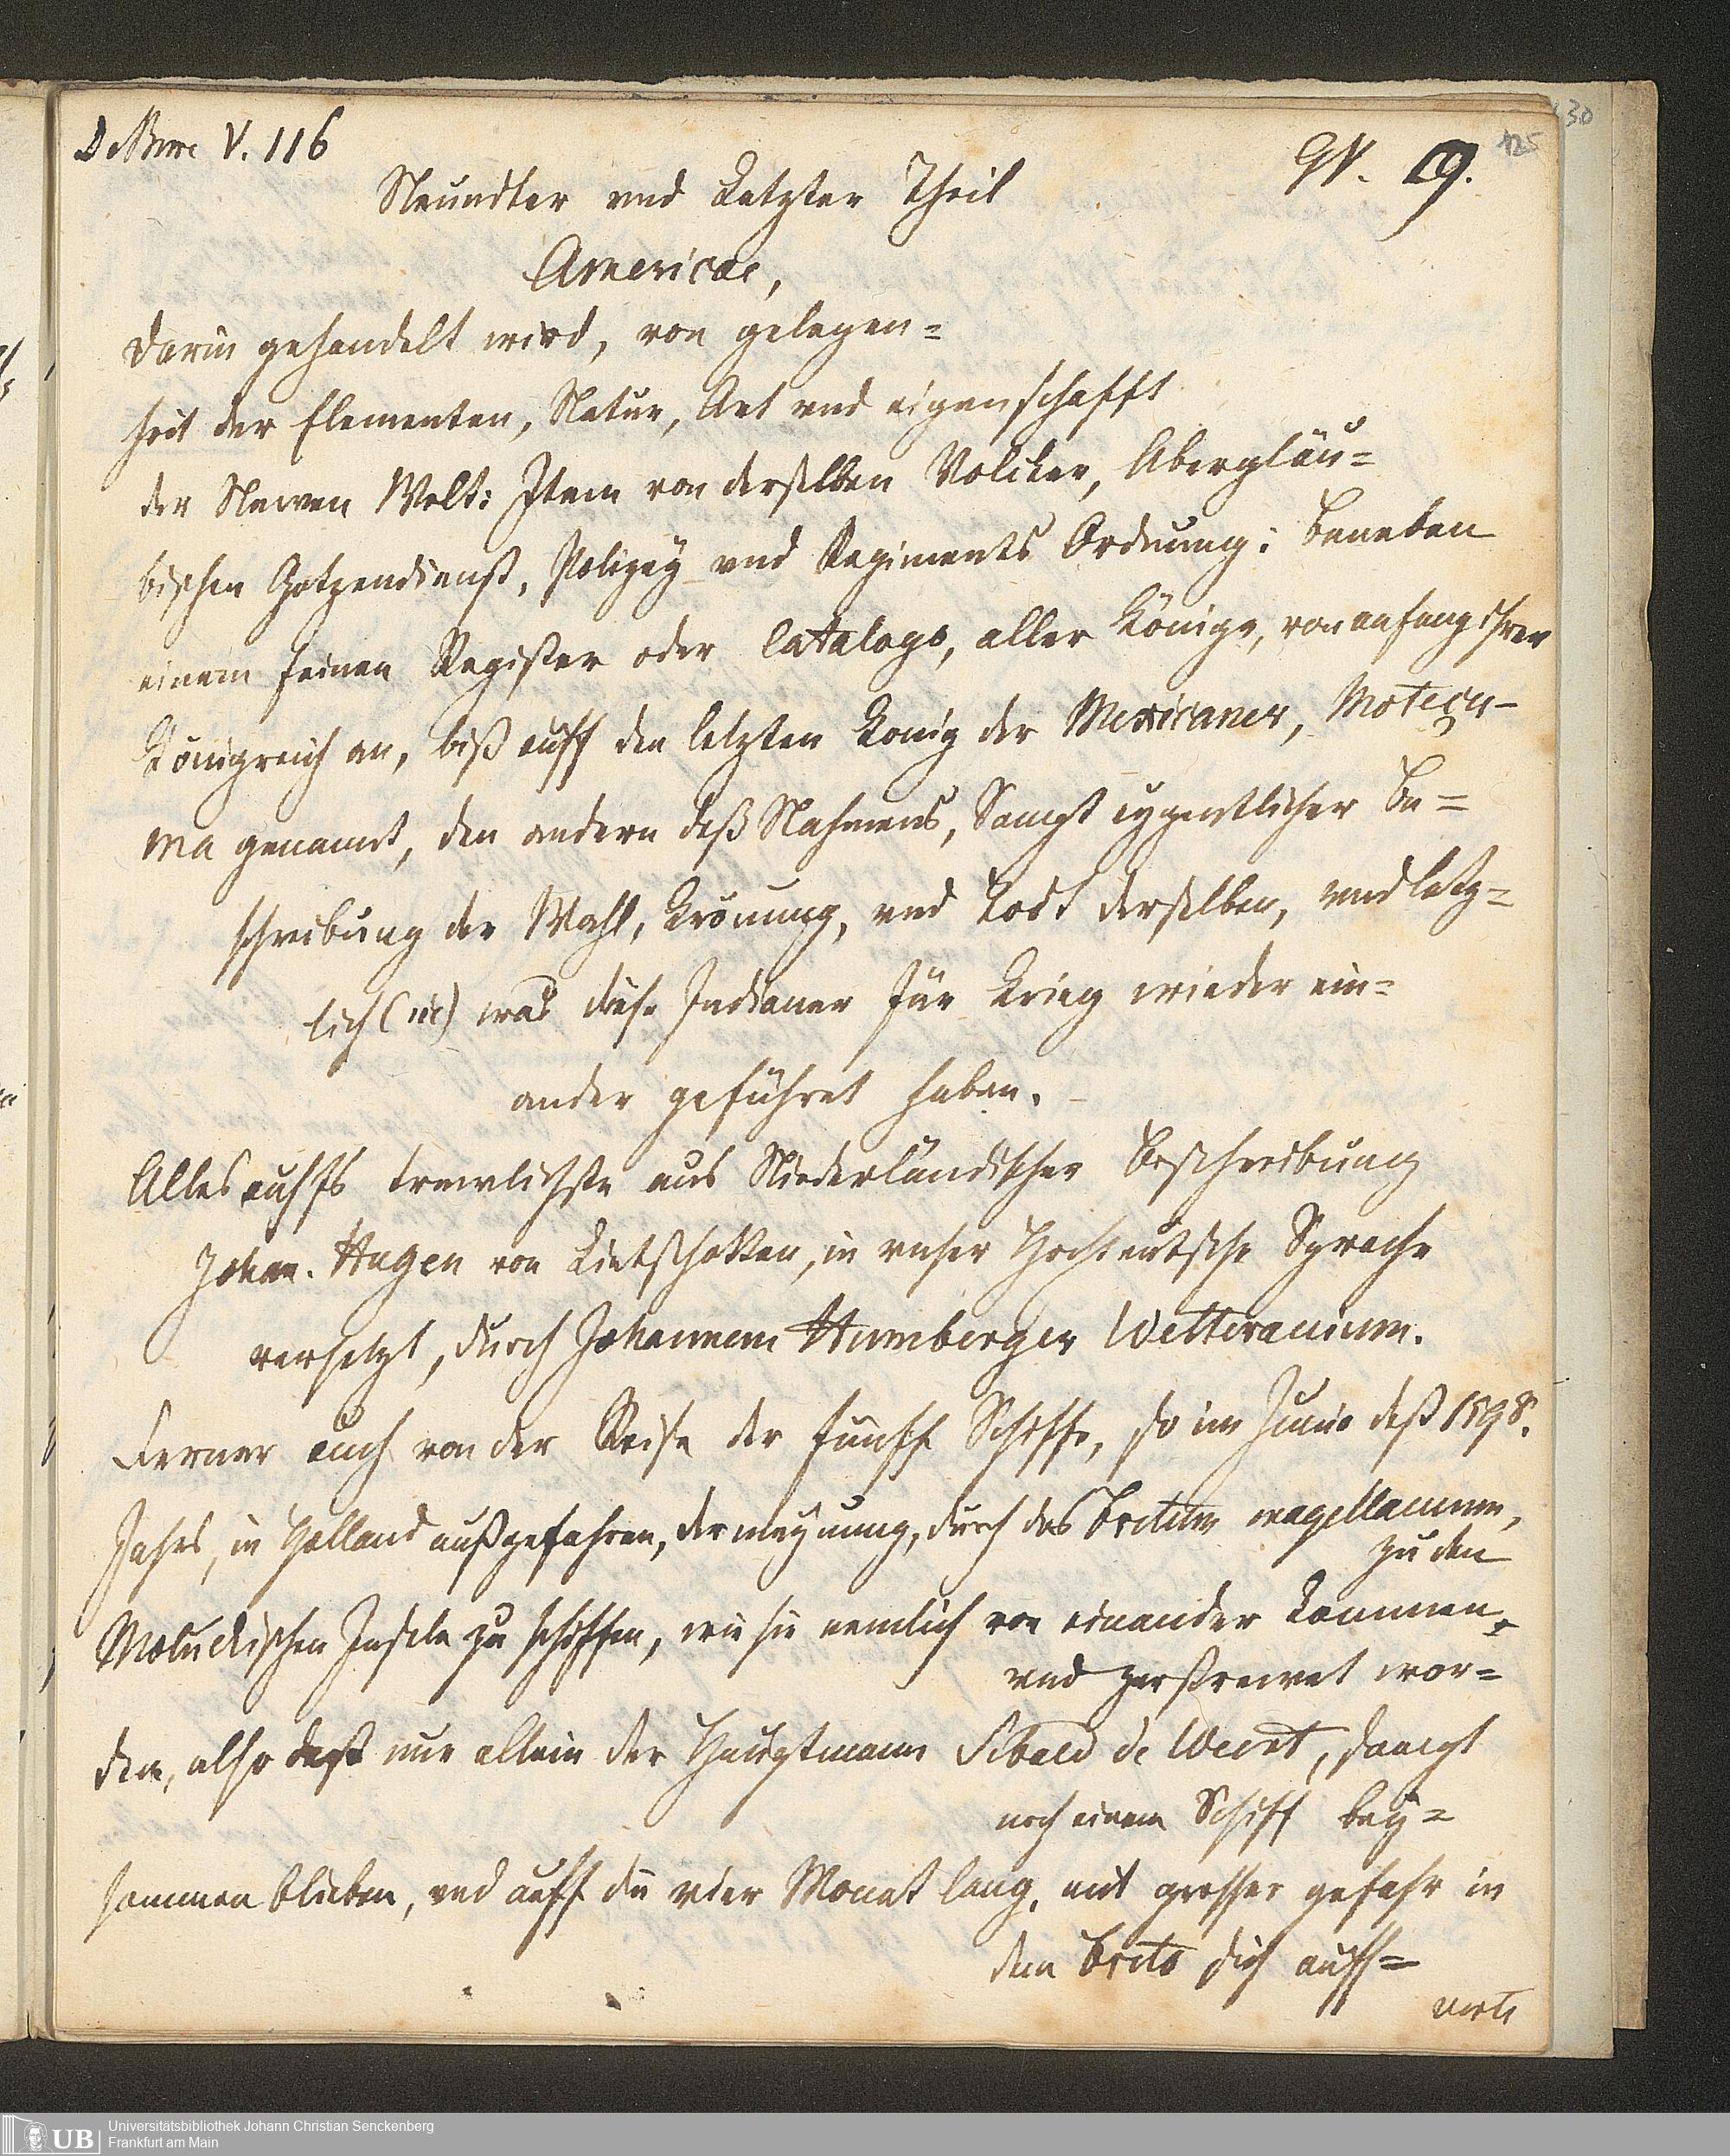 DeBure V. 116
N. 9.
125
30
Neundter und Letzter Theil
Americae,
darin gehandelt wird, von gelegen=
heit der Elementen, Natur, Art vnd eigenschafft
der Newen Welt: Item von derselben Volcker, Abergläu=
bischen Götzendienst, Policey vnd Regiments Ordnung: beneben
einem feinen Register oder Catalogo, aller Könige, von anfang ihrer
Königreich an, biß auff den letzten König der Mexicaner, Moteçu-
ma genannt, den andern deß Nahmens, Sampt eygentlicher Be=
schreibung der Wahl, Krönung, vnd Todt derselben, vnd letz=
lich (sic) was diese Indianer für Krieg wieder ein=
ander geführet haben.
Alles auffs trewlichste aus Niederländischer Beschreibung
Johan. Hugen von Lintschotten, in vnser Hochteutsche Sprache
versetzt, durch Johannem Humberger Wetteranium.
Ferner auch von der Reise der fünff Schiffe, so im Junio deß 1598.
Jahrs, in Holland außgefahren, der meynung, durch das Fretum magellanum,
zu den
Moluckischen Inseln zu schiffen, wie sie nemlich von einander kommen,
vnd zerstrewet wor=
den, also daß nur allein der Hauptmann Sibald de Weert, sampt
noch einem Schiff bey=
sammen blieben, vnd auff die vier Monat lang, mit grosser gefahr in
dem Freto sich auff=
verte
UB
Universitätsbibliothek Johann Christian Senckenberg
Frankfurt am Main